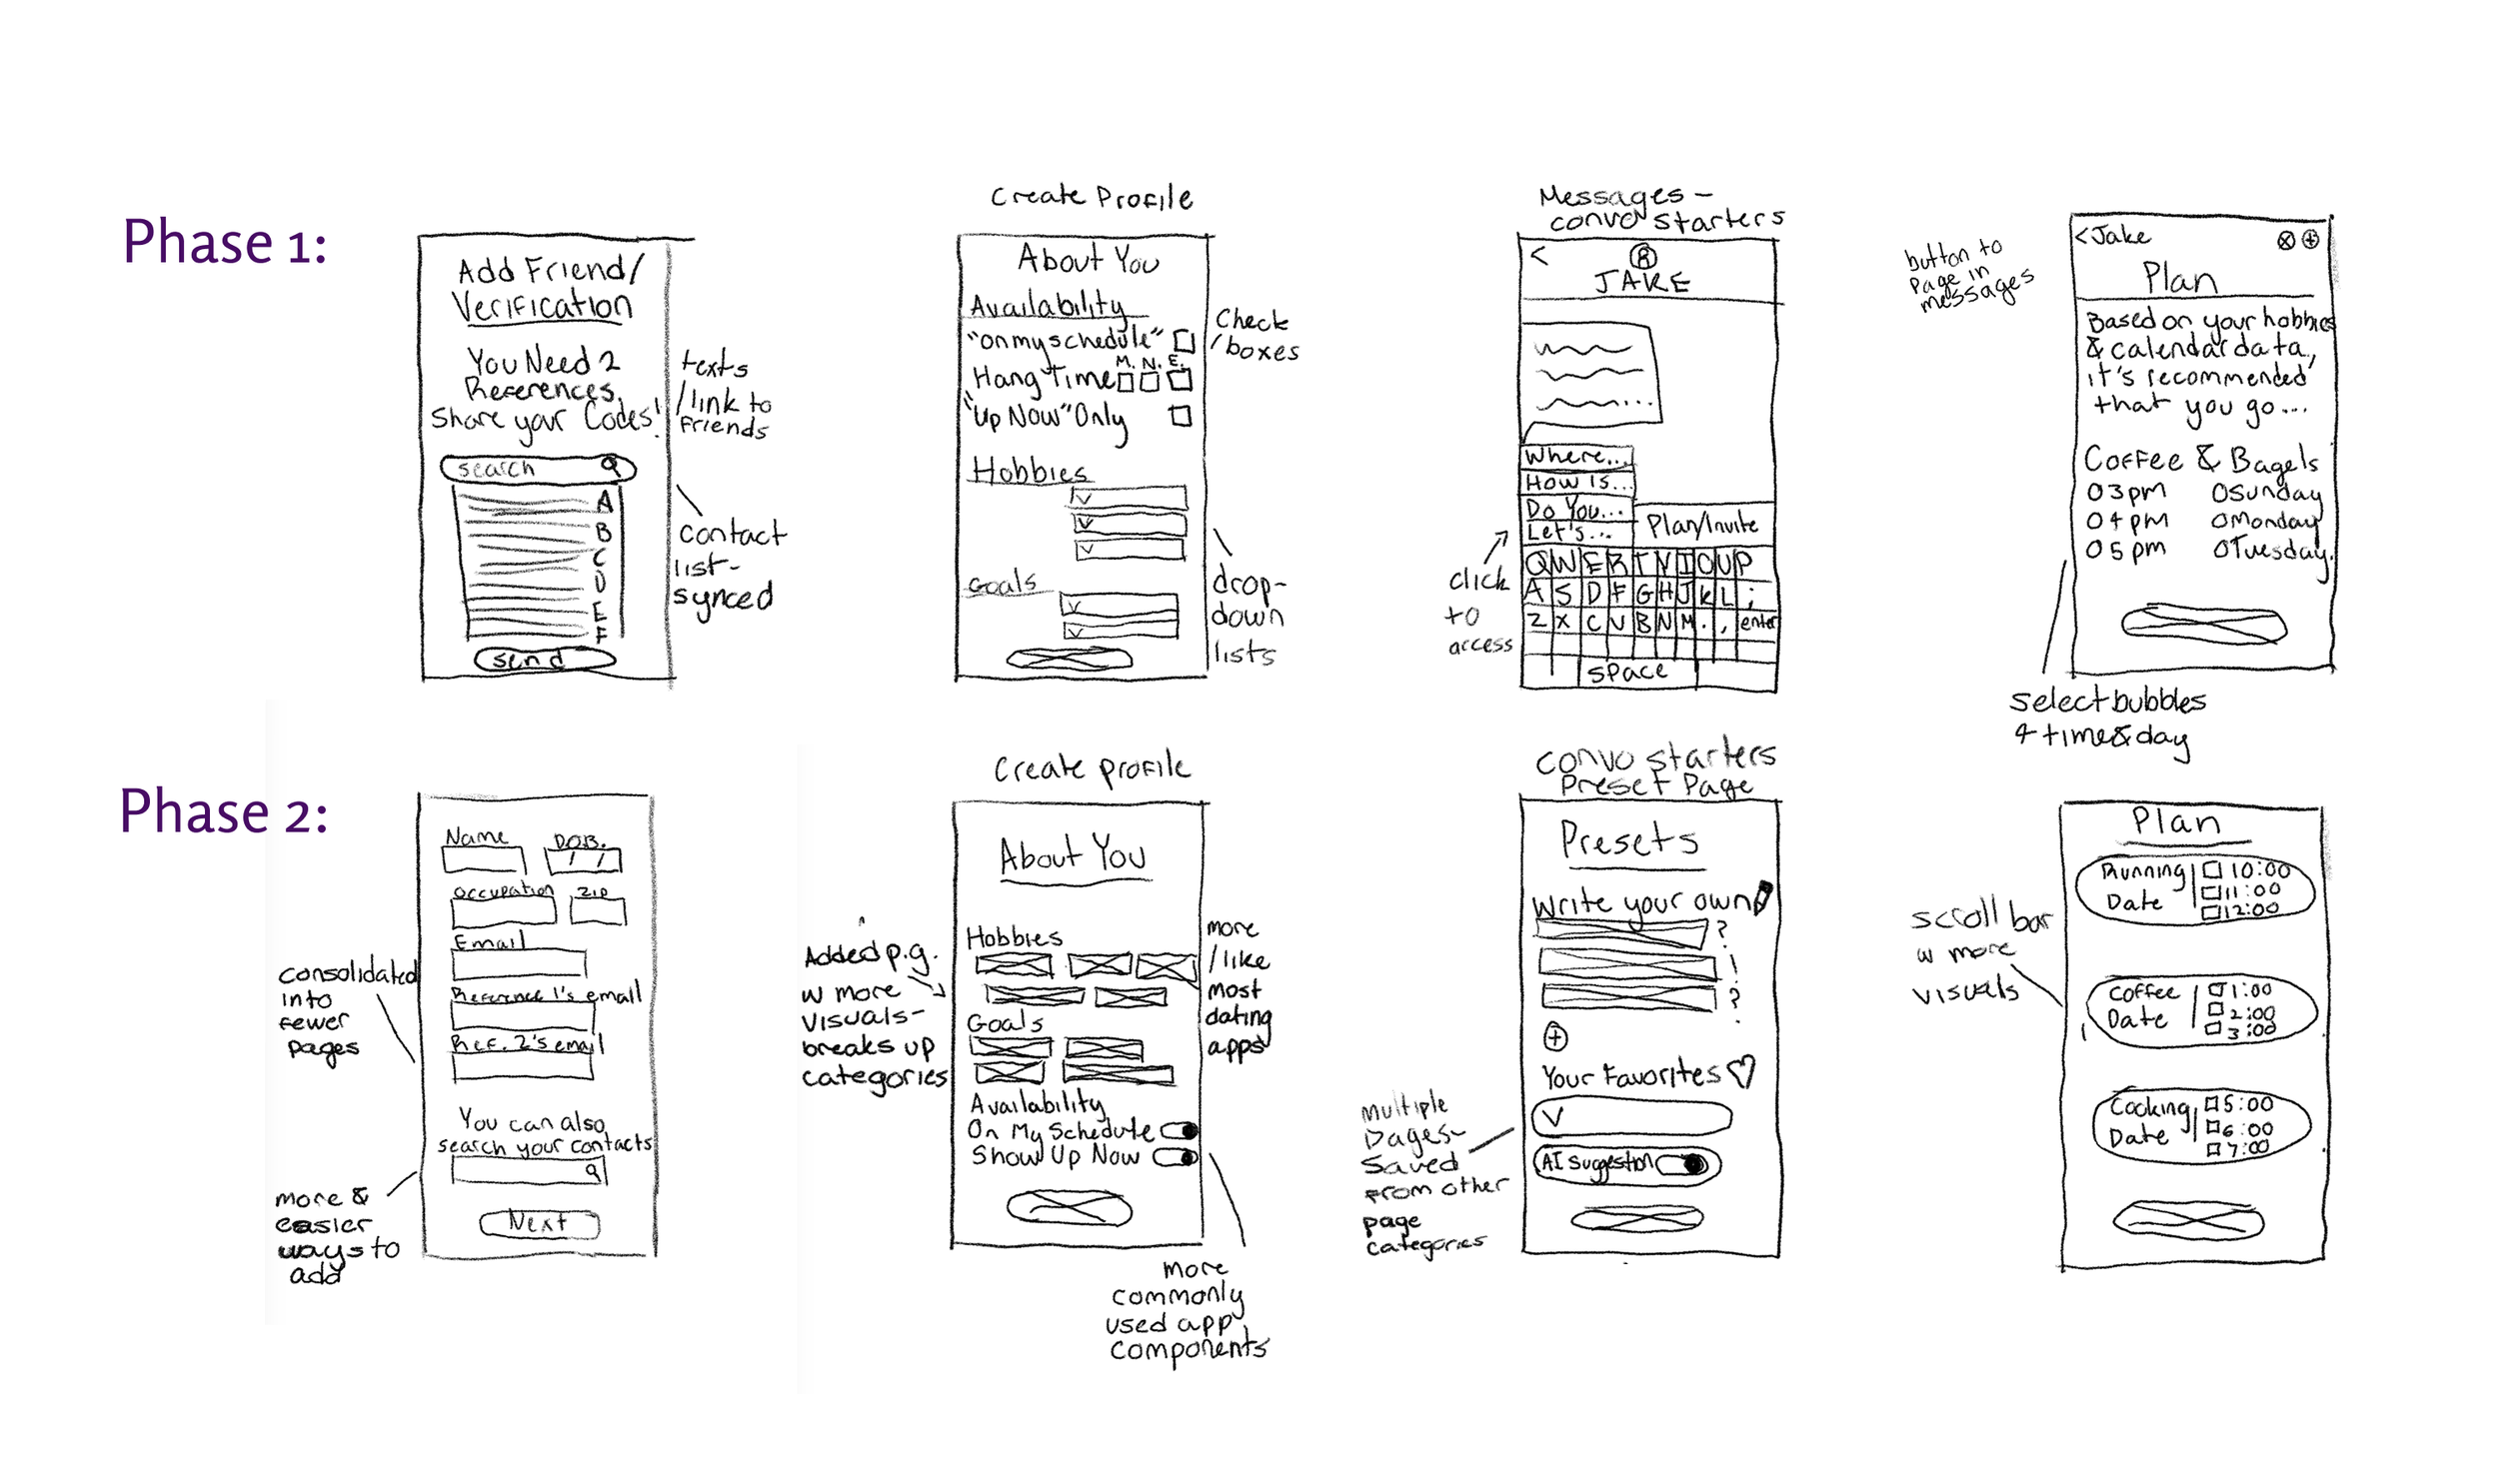 Phase 1:
Add Friend/
Verification
You Need 2
References.
Share your Codes!
search
A
B
C
D
E
F
send
texts
/link to
friends
contact
list-
synced
Create Profile
About You
Availability
"on my schedule"
M. N. E.
Hang Time
"Up Now" Only
Hobbies
Goals
Check
/boxes
drop-
down
lists
Messages -
convo starters
<
JAKE
Where...
How is...
Do You...
Let's...
Plan/Invite
Q W E R T Y I O U P
A S D F G H J K L ;
Z X C V B N M . , enter
space
click
to
access
button to
page in
messages
<Jake
Plan
Based on your hobbies
& calendar data,
it's recommended
that you go...
Coffee & Bagels
O 3pm O Sunday
O 4pm O Monday
O 5pm O Tuesday.
select bubbles
4 time & day
Phase 2:
Name D.O.B.
/ /
Occupation ZIP
Email
Reference 1's email
Ref. 2's email
You can also
search your contacts
Next
consolidated
into
fewer
pages
more &
easier
ways to
add
Create profile
About You
Hobbies
Goals
Availability
On My Schedule
Show Up Now
Added p.g.
w more
visuals-
breaks up
categories
more
/like
most
dating
apps
more
commonly
used app
components
convo starters
Preset Page
Presets
Write your own
?
!
?
+
Your Favorites
AI suggestion
multiple
pages-
saved
from other
page
categories
Plan
Running 10:00
Date 11:00
12:00
Coffee 1:00
Date 2:00
3:00
Cooking 5:00
Date 6:00
7:00
scroll bar
w more
visuals